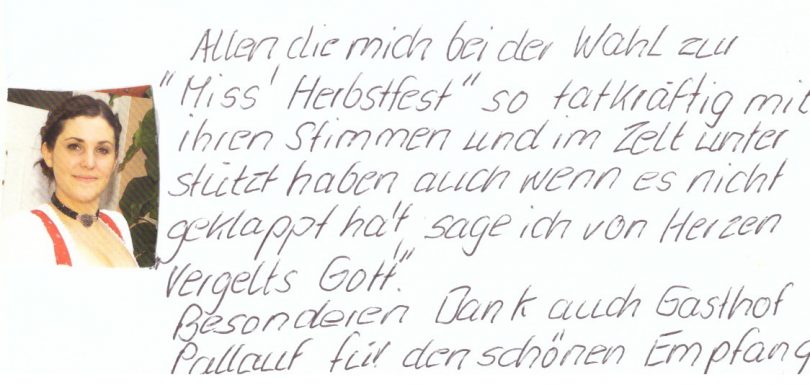 Allen die mich bei der Wahl zur
"Miss' Herbstfest" so tatkräftig mit
ihren Stimmen und im Zelt unter
stützt haben auch wenn es nicht
geklappt hat, sage ich von Herzen
"Vergelts Gott."
Besonderen Dank auch Gasthof
Pallauf für den schönen Empfang